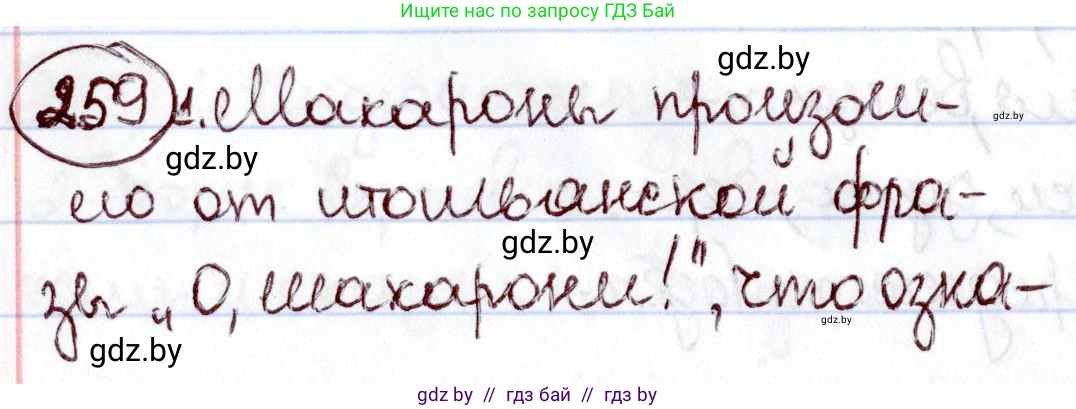 Ищите нас по запросу ГДЗ Бай
gdz.by
259 1. Макароны произош-
gdz.by
gdz.by
ло от итальянской фра-
gdz.by
зы „О, макарони!", что озна-
gdz.by
gdz.by
gdz.by // гдз бай // гдз by